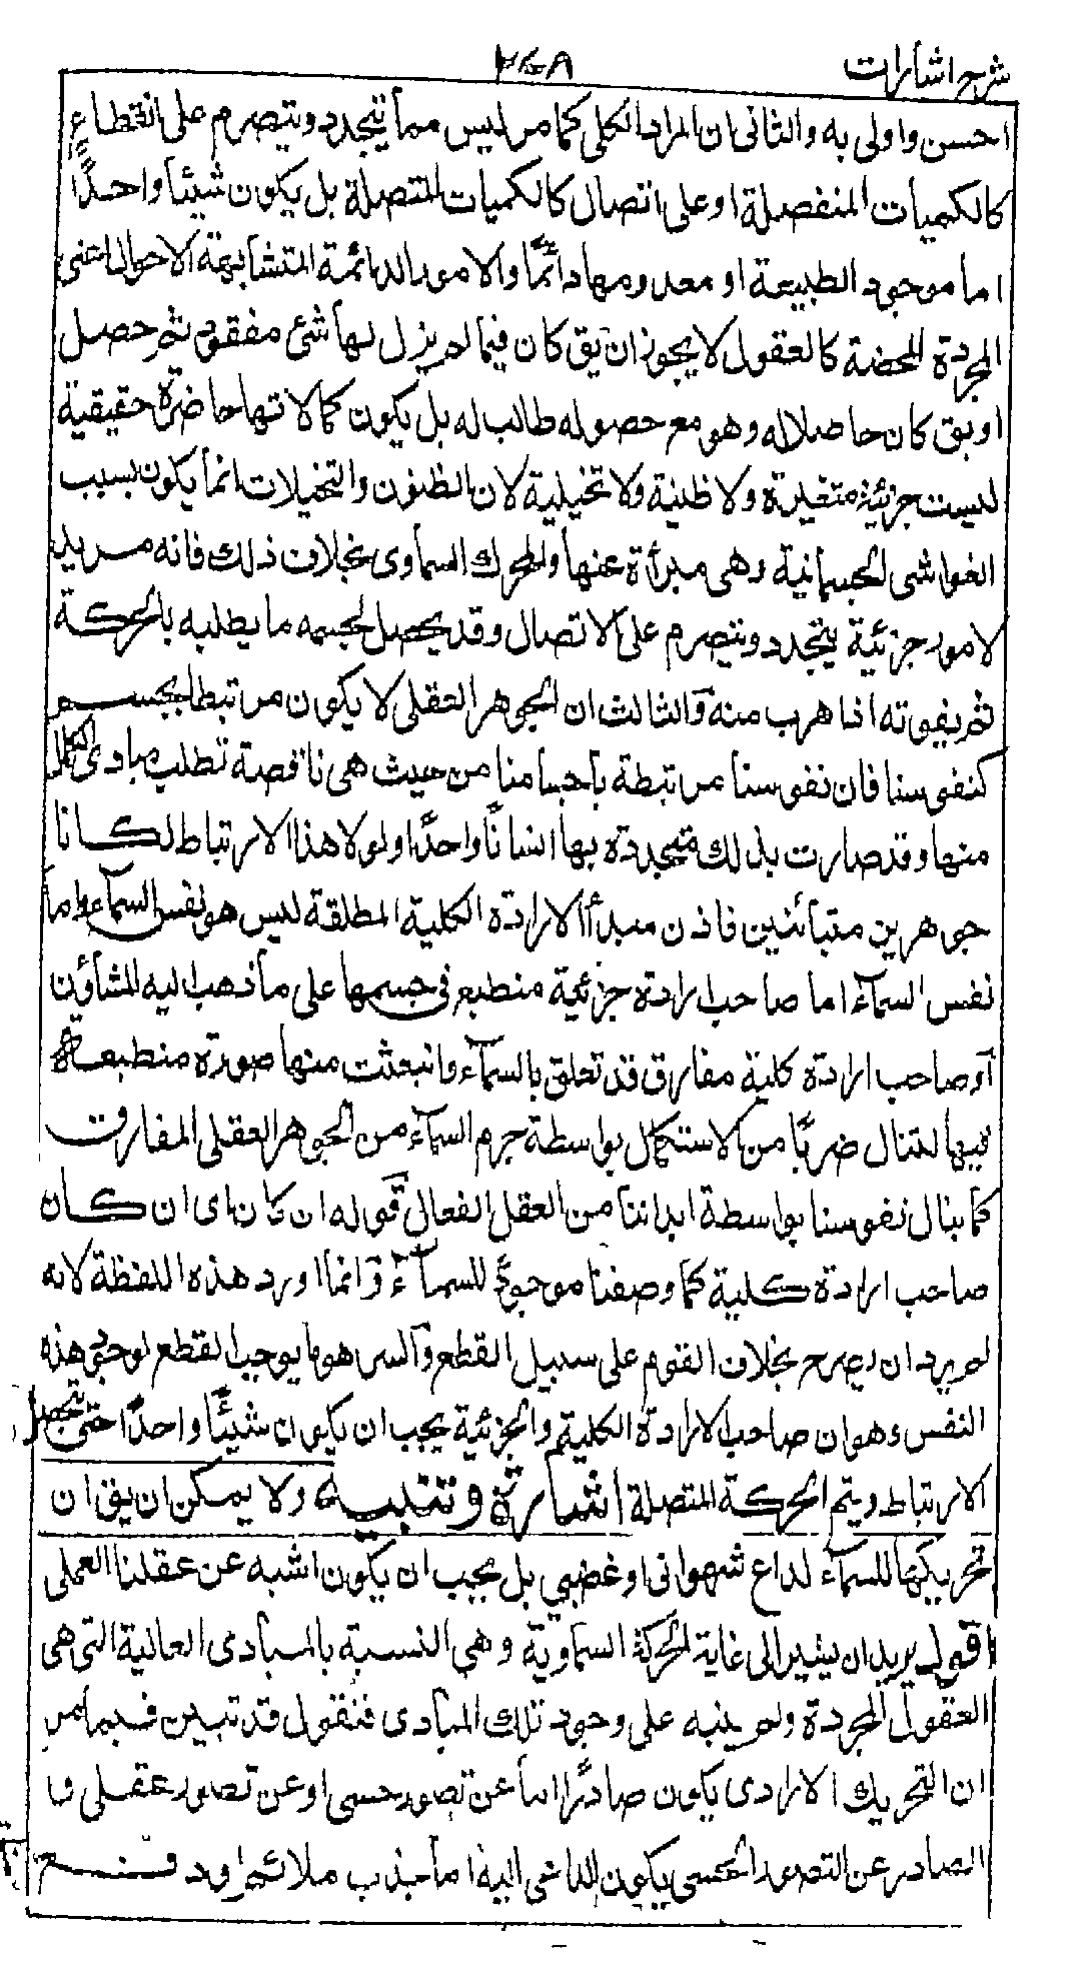 شرح اشارات
۲۶۸
احسن واولى به والثانى ان المراد الكلى كما مر ليس مما يتجدد ويتصرم على انقطاع
كالكميات المنفصلة او على اتصال كالكميات المتصلة بل يكون شيئا واحدًا
اما موجود الطبيعة او معدومها دائمًا والامور الدائمة المتشابهة الاحوال اعنى
المجردة المحضة كالعقول لا يجوز ان يق كان فيما لم يزل لها شئ مفقود ثم حصل
او يق كان حاصلا له وهو مع حصوله طالب له بل يكون كمالاتها حاضرة حقيقية
ليست جزئية متغيرة ولا ظنية ولا تخيلية لان الظنون والتخيلات انما يكون بسبب
الغواشى الجسمانية وهى مبرأة عنها والمحرك السماوى بخلاف ذلك فانه مريد
لامور جزئية يتجدد ويتصرم على الاتصال وقد يحصل لجسمه ما يطلبه بالحركة
ثم يفوته اذا هرب منه والثالث ان الجوهر العقلى لا يكون مرتبطا بجسم
كنفوسنا فان نفوسنا مرتبطة باجسامنا من حيث هى ناقصة تطلب مبادى الكمال
منها وقد صارت بذلك متجددة بها انسانًا واحدًا ولولا هذا الارتباط لكانا
جوهرين متبائنين فاذن مبدأ الارادة الكلية المطلقة ليس هو نفس السماء واما
نفس السماء اما صاحب ارادة جزئية منطبع فى جسمها على ما ذهب اليه المشاؤن
او صاحب ارادة كلية مفارق قد تعلق بالسماء وانبعثت منها صورة منطبعة
فيها لتنال ضربًا من الاستكمال بواسطة جرم السماء من الجوهر العقلى المفارق
كما ينال نفوسنا بواسطة ابداننا من العقل الفعال قوله ان كان اى ان كان
صاحب ارادة كلية كما وصفنا موجودًا للسماء وانما اورد هذه اللفظة لانه
لم يرد ان يصرح بخلاف القوم على سبيل القطع والسر هو ما يوجب القطع لوجود هذه
النفس وهو ان صاحب الارادة الكلية والجزئية يجب ان يكون شيئًا واحدًا حتى يحصل
الارتباط ويتم الحركة المتصلة اشارة وتنبيه ولا يمكن ان يق ان
تحريكها للسماء لداع شهوانى او غضبى بل يجب ان يكون اشبه عن عقلنا العملى
اقول يريد ان يشير الى غاية الحركة السماوية وهى النسبة بالمبادى العالية التى هى
العقول المجردة ولم ينبه على وجود تلك المبادى فنقول قد تبين فيما مر
ان التحريك الارادى يكون صادرًا اما عن تصور حسى او عن تصور عقلى و
الصادر عن التصور الحسى يكون الداعى اليه اما جذب ملائم او دفع